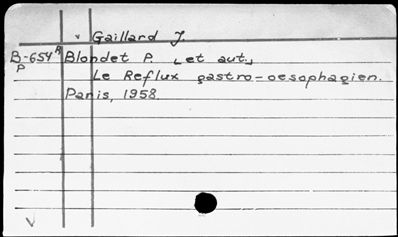 v Gaillard J.
B-654 A Blondet P. [et aut.]
P Le Reflux gastro-oesophagien.
Paris, 1958.
V